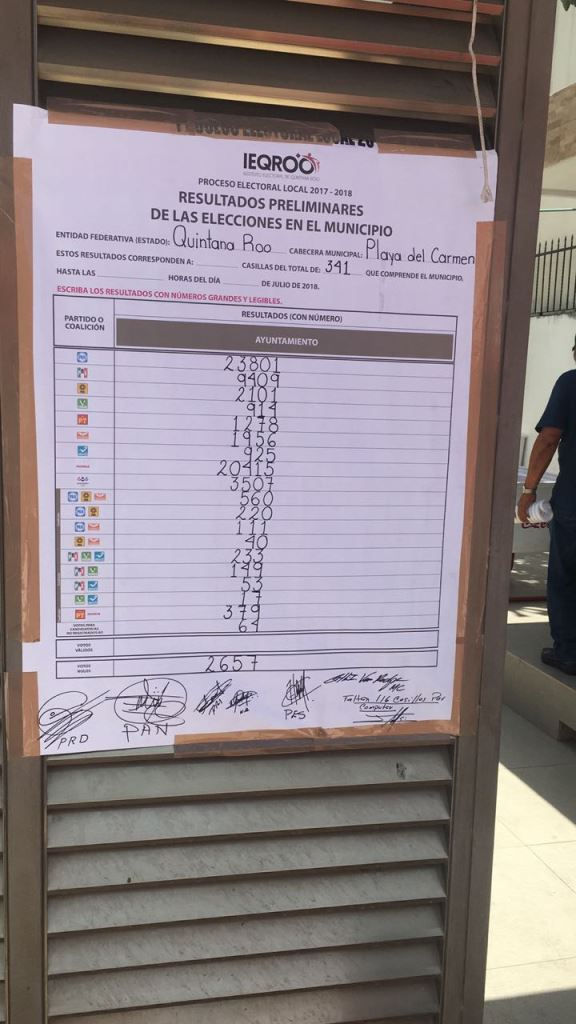 PROCESO ELECTORAL LOCAL 20
IEQROO
INSTITUTO ELECTORAL DE QUINTANA ROO
PROCESO ELECTORAL LOCAL 2017 - 2018
RESULTADOS PRELIMINARES
DE LAS ELECCIONES EN EL MUNICIPIO
ENTIDAD FEDERATIVA (ESTADO): Quintana Roo CABECERA MUNICIPAL: Playa del Carmen
ESTOS RESULTADOS CORRESPONDEN A: CASILLAS DEL TOTAL DE: 341 QUE COMPRENDE EL MUNICIPIO,
HASTA LAS HORAS DEL DÍA DE JULIO DE 2018.
ESCRIBA LOS RESULTADOS CON NÚMEROS GRANDES Y LEGIBLES.
PARTIDO O COALICIÓN
RESULTADOS (CON NÚMERO)
AYUNTAMIENTO
PAN 23801
PRI 9409
2101
914
PT 1278
1956
925
morena 20415
3507
560
220
111
40
233
149
53
17
PT morena 379
VOTOS PARA CANDIDATURAS NO REGISTRADAS 64
VOTOS VÁLIDOS
VOTOS NULOS 2657
PRD
PAN
PES
MC
Faltan 116 Casillas Por
Computar